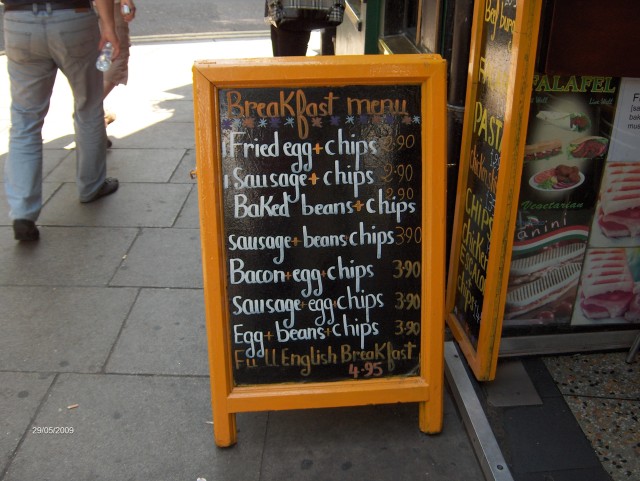 Breakfast menu
Fried egg+chips 2.90
Sausage+chips 2.90
Baked beans+chips 2.90
sausage+beans chips 3.90
Bacon+egg+chips 3.90
Sausage+egg+chips 3.90
Egg+beans+chips 3.90
Full English Breakfast
4.95
Beef burg
PASTA
chicken
CHIPS
chicken
FALAFEL
Vegetarian
Panini
29/05/2009